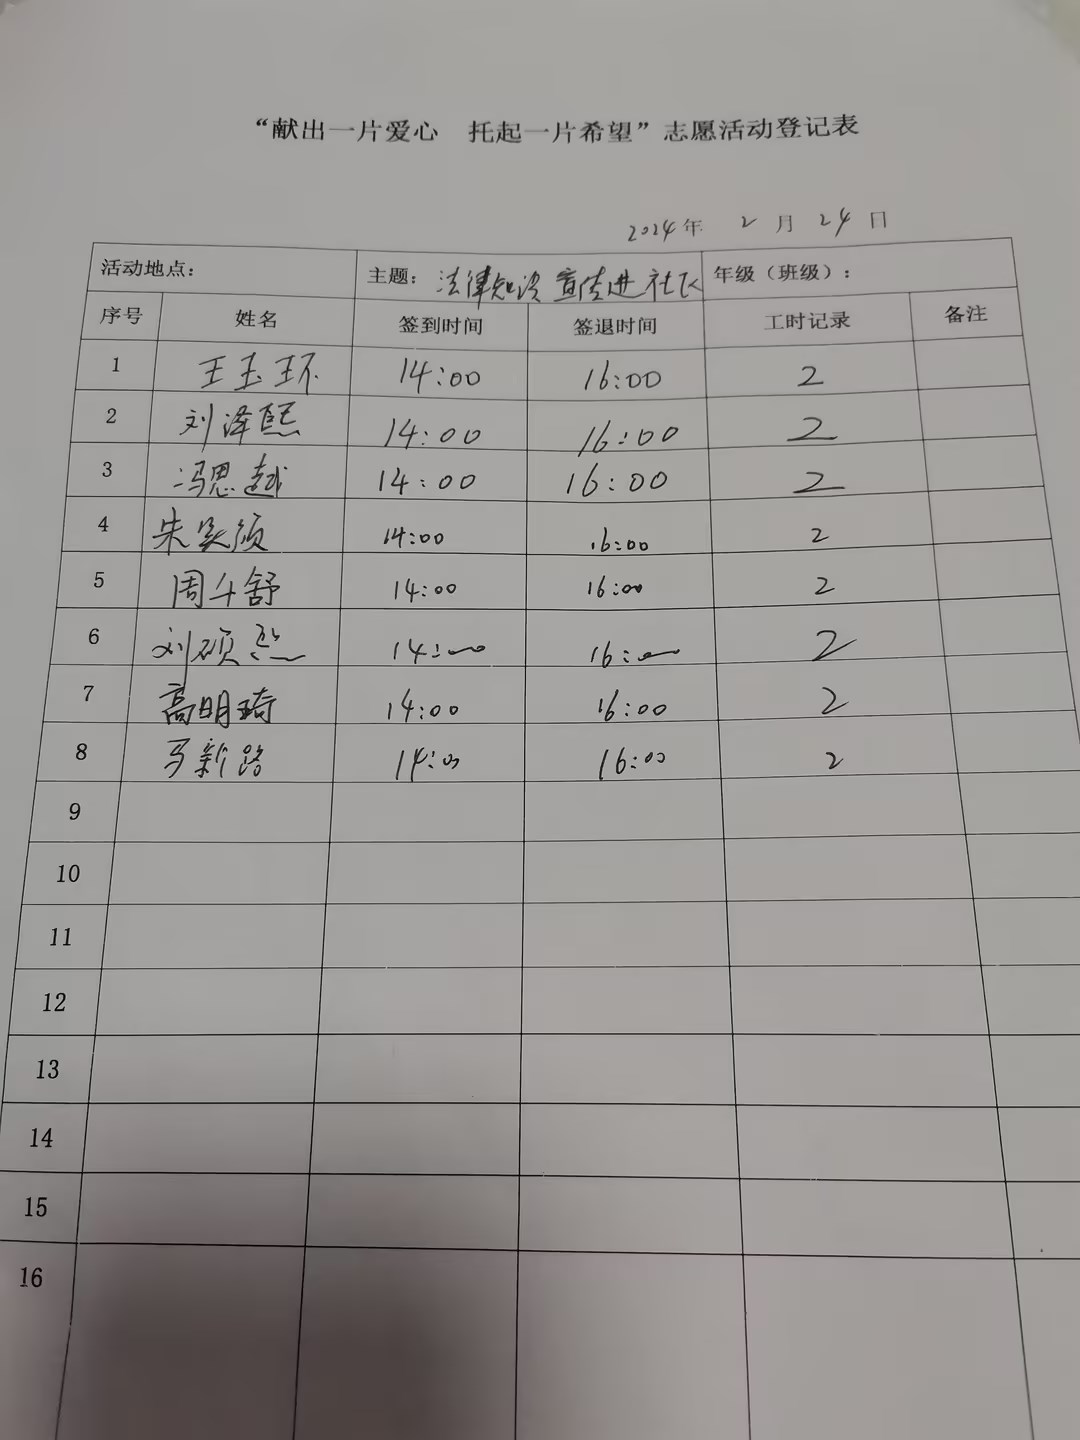 “献出一片爱心 托起一片希望”志愿活动登记表
2024年 2月 24日
活动地点： 主题：法律知识宣传进社区 年级（班级）：
序号 姓名 签到时间 签退时间 工时记录 备注
1 王玉环 14:00 16:00 2
2 刘泽熙 14:00 16:00 2
3 冯思越 14:00 16:00 2
4 朱 14:00 16:00 2
5 周 舒 14:00 16:00 2
6 刘硕 14:00 16:00 2
7 高明琦 14:00 16:00 2
8 马新路 14:00 16:00 2
9
10
11
12
13
14
15
16